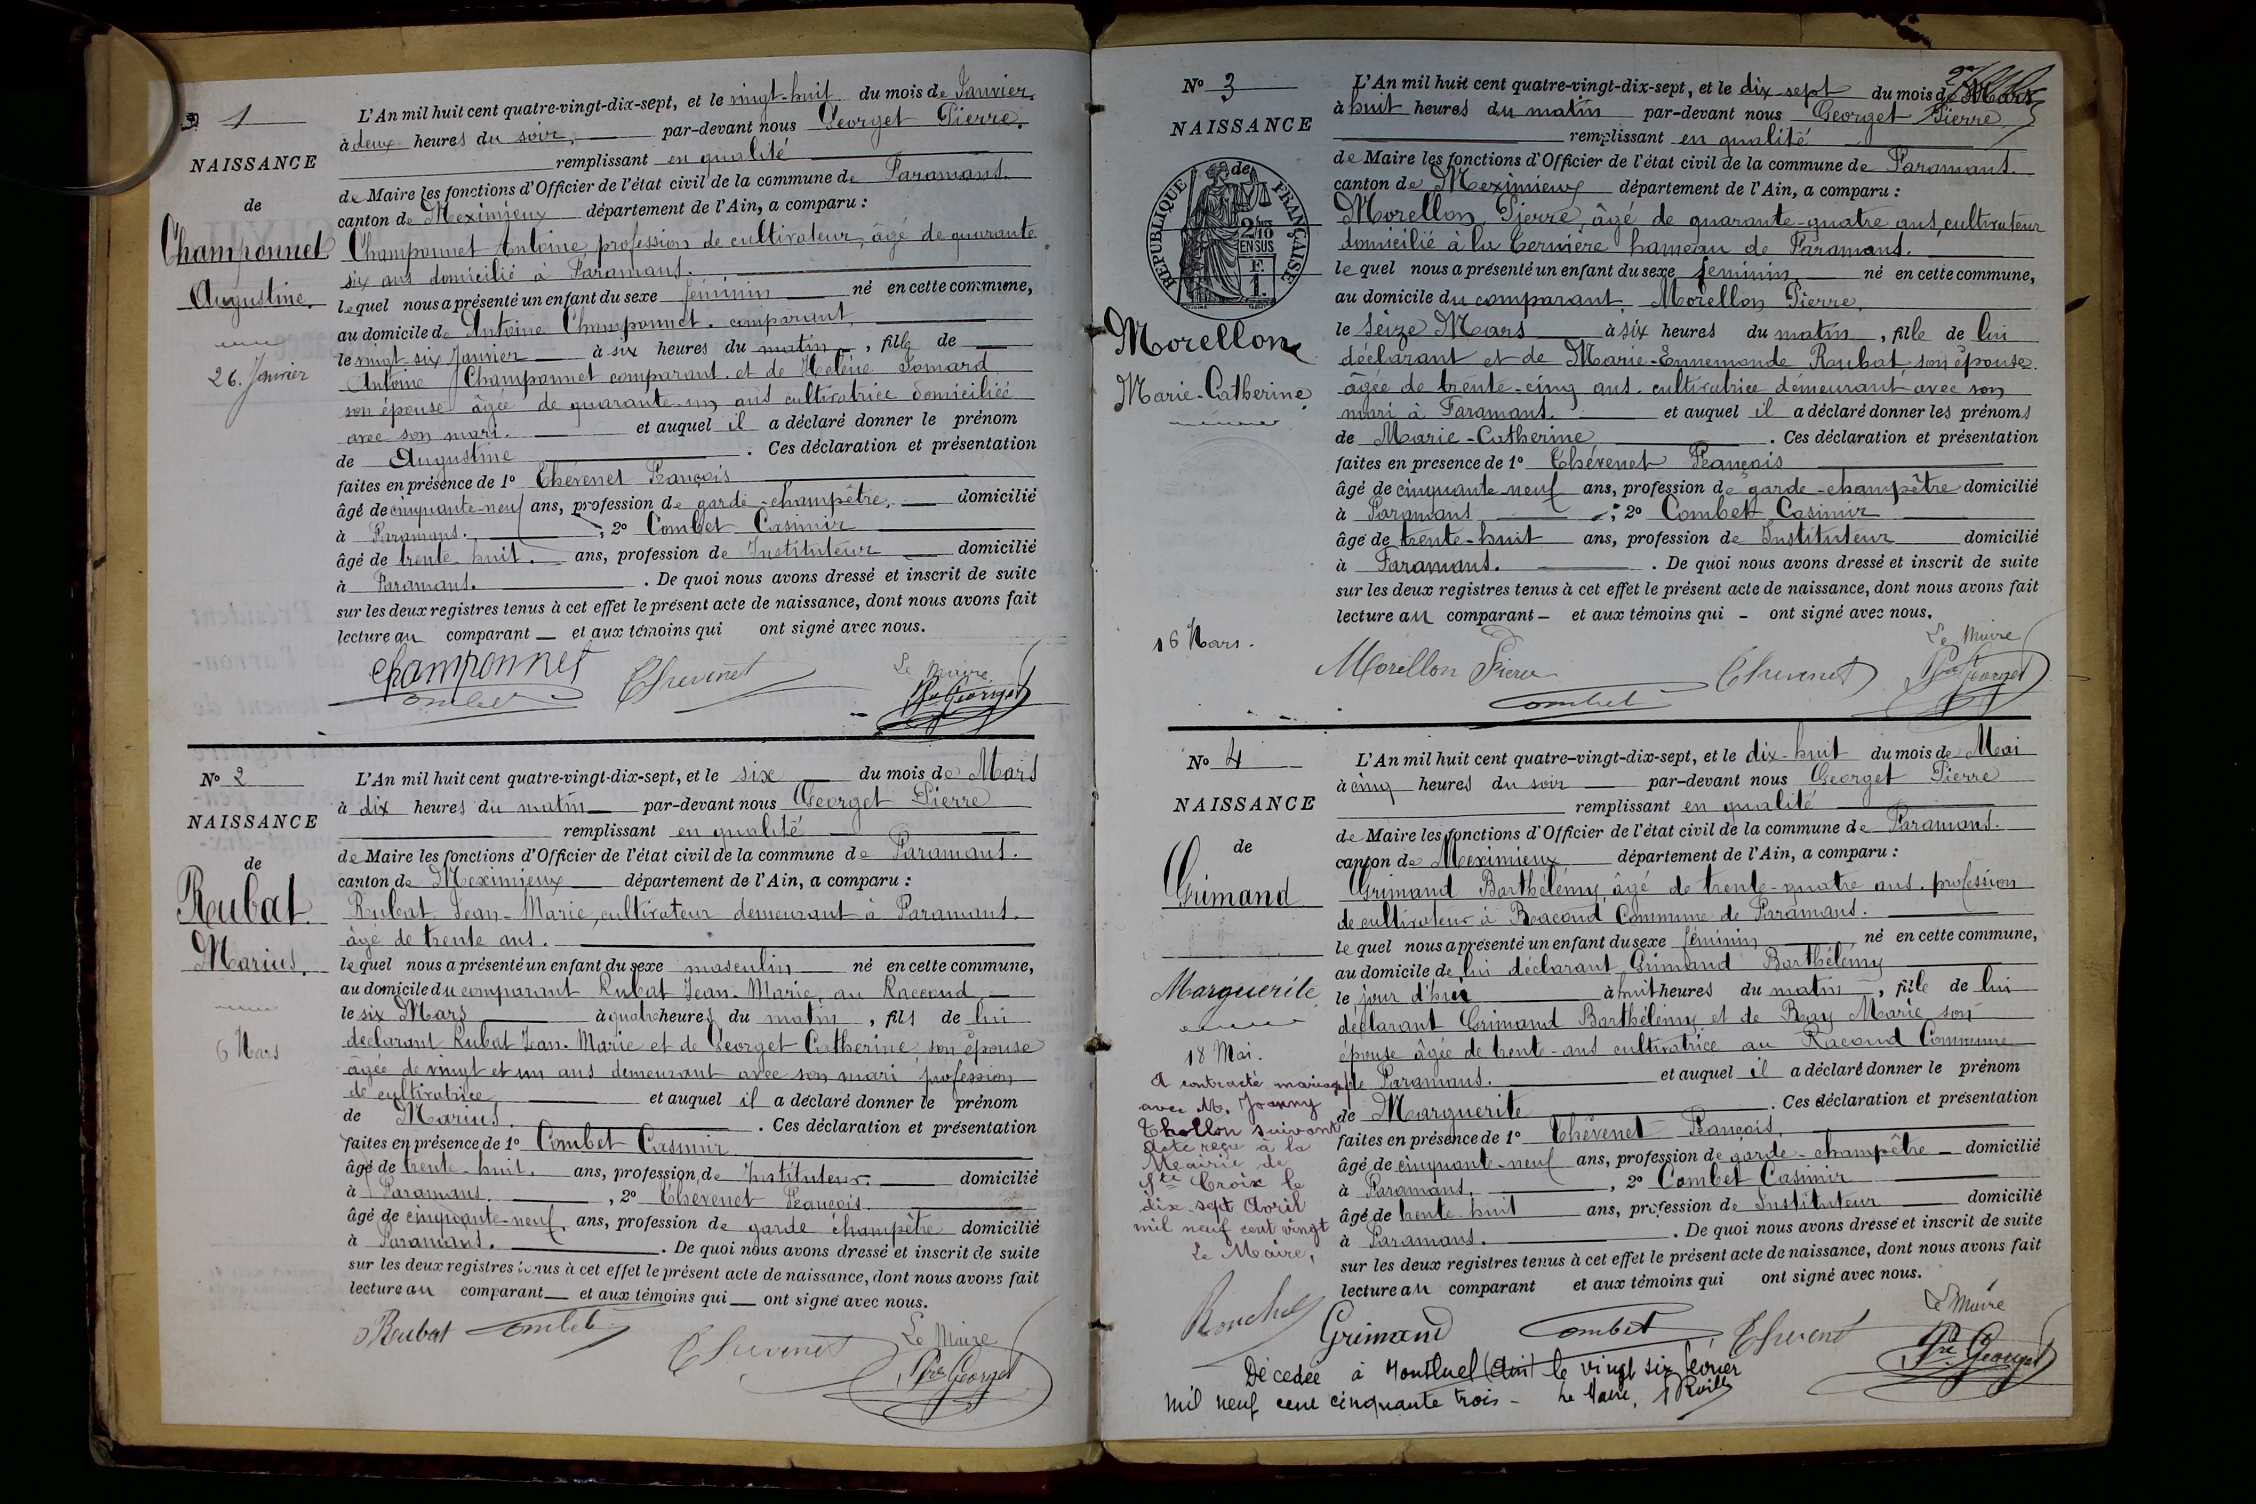 1
NAISSANCE
de
Champonnet
Augustine.
26. Janvier
L'An mil huit cent quatre-vingt-dix-sept, et le vingt-huit du mois de Janvier
à deux heures du soir, par-devant nous Georget Pierre,
remplissant en qualité
de Maire les fonctions d'Officier de l'état civil de la commune de Faramans.
canton de Meximieux département de l'Ain, a comparu :
Champonnet Antoine profession de cultivateur, âgé de quarante
six ans domicilié à Faramans.
lequel nous a présenté un enfant du sexe féminin né en cette commune,
au domicile de Antoine Champonnet. comparant
le vingt six Janvier à six heures du matin, fille de
Antoine Champonnet comparant et de Hélène
son épouse âgée de quarante-un ans cultivatrice domiciliée
avec son mari. et auquel il a déclaré donner le prénom
de Augustine. Ces déclaration et présentation
faites en présence de 1º Thévenet François
âgé de cinquante-neuf ans, profession de garde-champêtre, domicilié
à Faramans. ; 2º Combet Casimir
âgé de trente huit. ans, profession de Instituteur domicilié
à Faramans. . De quoi nous avons dressé et inscrit de suite
sur les deux registres tenus à cet effet le présent acte de naissance, dont nous avons fait
lecture au comparant et aux témoins qui ont signé avec nous.
Champonnet Combet Thevenet Le Maire
Pre Georget
Nº 2
NAISSANCE
de
Rubat
Marius.
6 Mars
L'An mil huit cent quatre-vingt-dix-sept, et le six du mois de Mars
à dix heures du matin par-devant nous Georget Pierre
remplissant en qualité
de Maire les fonctions d'Officier de l'état civil de la commune de Faramans.
canton de Meximieux département de l'Ain, a comparu :
Rubat Jean-Marie, cultivateur demeurant à Faramans.
âgé de trente ans.
lequel nous a présenté un enfant du sexe masculin né en cette commune,
au domicile du comparant Rubat Jean-Marie, au Raccond
le six Mars à quatre heures du matin, fils de lui
déclarant Rubat Jean-Marie et de Georget Catherine son épouse
âgée de vingt et un ans demeurant avec son mari profession
de cultivatrice et auquel il a déclaré donner le prénom
de Marius. . Ces déclaration et présentation
faites en présence de 1º Combet Casimir
âgé de trente-huit. ans, profession de Instituteur. domicilié
à Faramans. , 2º Thévenet François
âgé de cinquante-neuf ans, profession de garde champêtre domicilié
à Faramans. . De quoi nous avons dressé et inscrit de suite
sur les deux registres tenus à cet effet le présent acte de naissance, dont nous avons fait
lecture au comparant et aux témoins qui ont signé avec nous.
Rubat Combet Thevenet Le Maire
Pre Georget
Nº 3
NAISSANCE
RÉPUBLIQUE FRANÇAISE
2/10
EN SUS
Morellon
Marie-Catherine.
16 Mars.
L'An mil huit cent quatre-vingt-dix-sept, et le dix-sept du mois de Mars
à huit heures du matin par-devant nous Georget Pierre
remplissant en qualité
de Maire les fonctions d'Officier de l'état civil de la commune de Faramans.
canton de Meximieux département de l'Ain, a comparu :
Morellon, Pierre, âgé de quarante-quatre ans, cultivateur
domicilié à la hameau de Faramans.
lequel nous a présenté un enfant du sexe féminin né en cette commune,
au domicile du comparant Morellon Pierre
le Seize Mars à six heures du matin, fille de lui
déclarant et de Marie-Ennemonde Roubat, son épouse
âgée de trente-cinq ans. cultivatrice demeurant avec son
mari à Faramans. et auquel il a déclaré donner les prénoms
de Marie-Catherine . Ces déclaration et présentation
faites en présence de 1º Thévenet François
âgé de cinquante-neuf ans, profession de garde-champêtre domicilié
à Faramans ; 2º Combet Casimir
âgé de trente-huit ans, profession de Instituteur domicilié
à Faramans. . De quoi nous avons dressé et inscrit de suite
sur les deux registres tenus à cet effet le présent acte de naissance, dont nous avons fait
lecture au comparant et aux témoins qui ont signé avec nous.
Morellon Pierre Combet Thevenet Le Maire
Pre Georget
Nº 4
NAISSANCE
de
Grimand
Marguerite
18 Mai.
A contracté mariage
avec M. Joanny
Thollon suivant
acte reçu à la
Mairie de
Ste Croix le
dix sept Avril
mil neuf cent vingt
Le Maire,
L'An mil huit cent quatre-vingt-dix-sept, et le dix-huit du mois de Mai
à cinq heures du soir par-devant nous Georget Pierre
remplissant en qualité
de Maire les fonctions d'Officier de l'état civil de la commune de Faramans.
canton de Meximieux département de l'Ain, a comparu :
Grimand Barthélémy, âgé de trente-quatre ans. profession
de cultivateur à Raccond Commune de Faramans.
lequel nous a présenté un enfant du sexe féminin né en cette commune,
au domicile de lui déclarant Grimand Barthélémy
le jour d'hui à huit heures du matin, fille de lui
déclarant Grimand Barthélémy et de Ray Marie son
épouse âgée de trente-ans cultivatrice au Racond Commune
de Faramans. et auquel il a déclaré donner le prénom
de Marguerite . Ces déclaration et présentation
faites en présence de 1º Thévenet François,
âgé de cinquante-neuf ans, profession de garde-champêtre domicilié
à Faramans. , 2º Combet Casimir
âgé de trente-huit ans, profession de Instituteur domicilié
à Faramans. . De quoi nous avons dressé et inscrit de suite
sur les deux registres tenus à cet effet le présent acte de naissance, dont nous avons fait
lecture au comparant et aux témoins qui ont signé avec nous.
Grimand Combet Thevenet Le Maire
Pre Georget
Décédée à Montluel (Ain) le vingt six février
mil neuf cent cinquante trois - Le Maire,